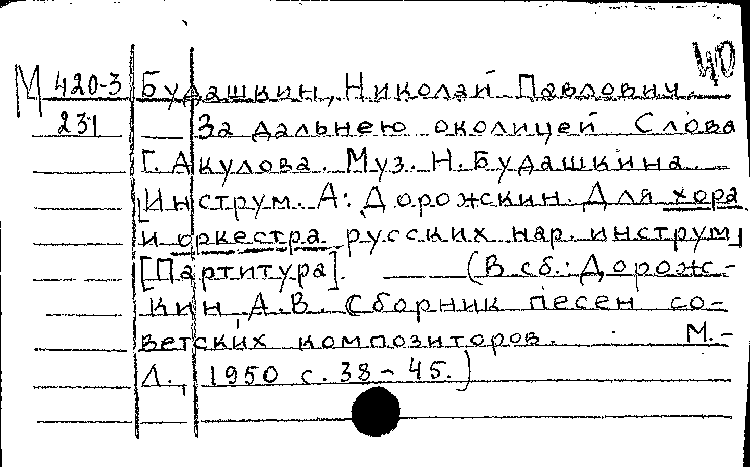 40
М 420-3 Будашкин, Николай Павлович.
231 За дальнею околицей Слова
Г. Акулова. Муз. Н. Будашкина
[Инструм. А: Дорожкин. Для хора
и оркестра русских нар. инструм]
[Партитура]. (В сб.: Дорож-
кин, А.В. Сборник песен со-
ветских композиторов. М.-
Л., 1950 с. 38-45.)